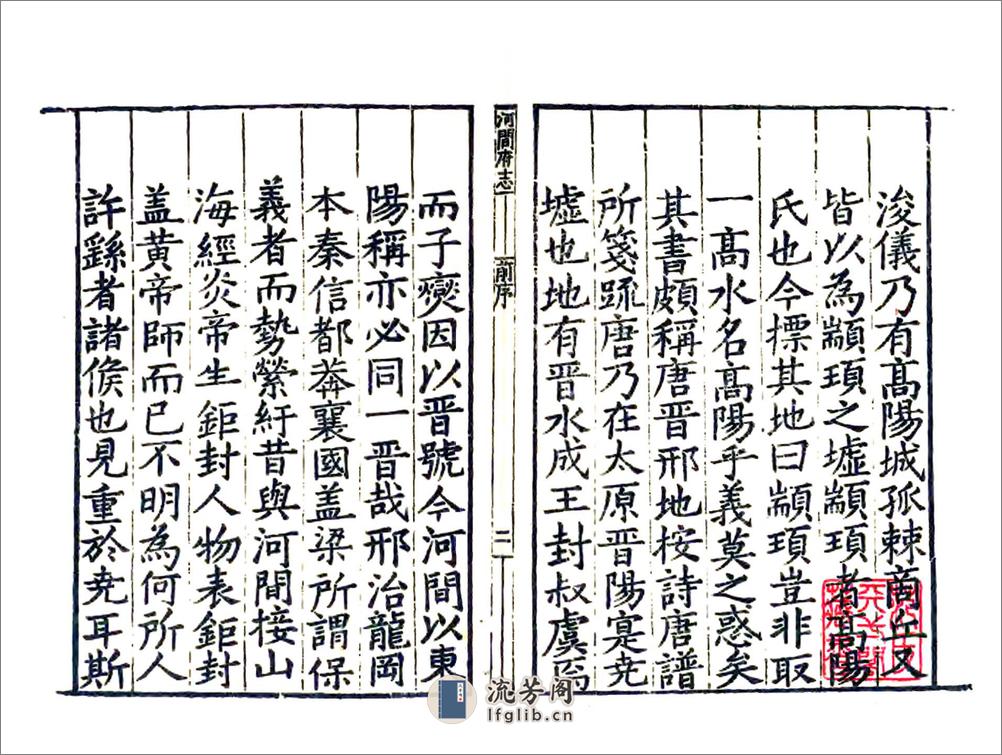 浚儀乃有髙陽城孤棘商丘又
皆以為顓頊之墟顓頊者髙陽
氏也今標其地曰顓頊豈非取
一髙水名髙陽乎義莫之惑矣
其書頗稱唐晉邢地按詩唐譜
所箋䟽唐乃在太原晉陽寔尭
墟也地有晉水成王封叔虞焉
河間府志
前序
二
而子燮因以晉號今河間以東
陽稱亦必同一晉哉邢治龍岡
本秦信都莽襄國盖梁所謂保
義者而勢縈紆昔與河間接山
海經炎帝生鉅封人物表鉅封
盖黄帝師而已不明為何所人
許繇者諸侯也見重於尭耳斯
流芳阁
lfglib.cn